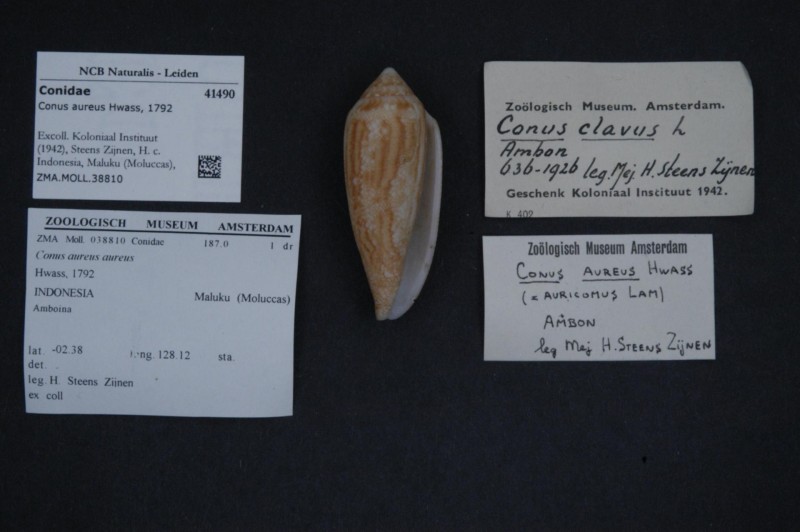 NCB Naturalis - Leiden
Conidae 41490
Conus aureus Hwass, 1792
Excoll. Koloniaal Instituut
(1942), Steens Zijnen, H. c.
Indonesia, Maluku (Moluccas),
ZMA.MOLL.38810
ZOOLOGISCH MUSEUM AMSTERDAM
ZMA Moll. 038810 Conidae 187.0 1 dr
Conus aureus aureus
Hwass, 1792
INDONESIA Maluku (Moluccas)
Amboina
lat. -02.38 long. 128.12 sta.
det.
leg. H. Steens Zijnen
ex coll
Zoölogisch Museum. Amsterdam.
Conus clavus L
Ambon
leg. Mej H. Steens Zijnen
Geschenk Koloniaal Instituut 1942.
K 402
Zoölogisch Museum Amsterdam
CONUS AUREUS HWASS
(= AURICOMUS LAM)
AMBON
leg Mej H. STEENS ZijNEN